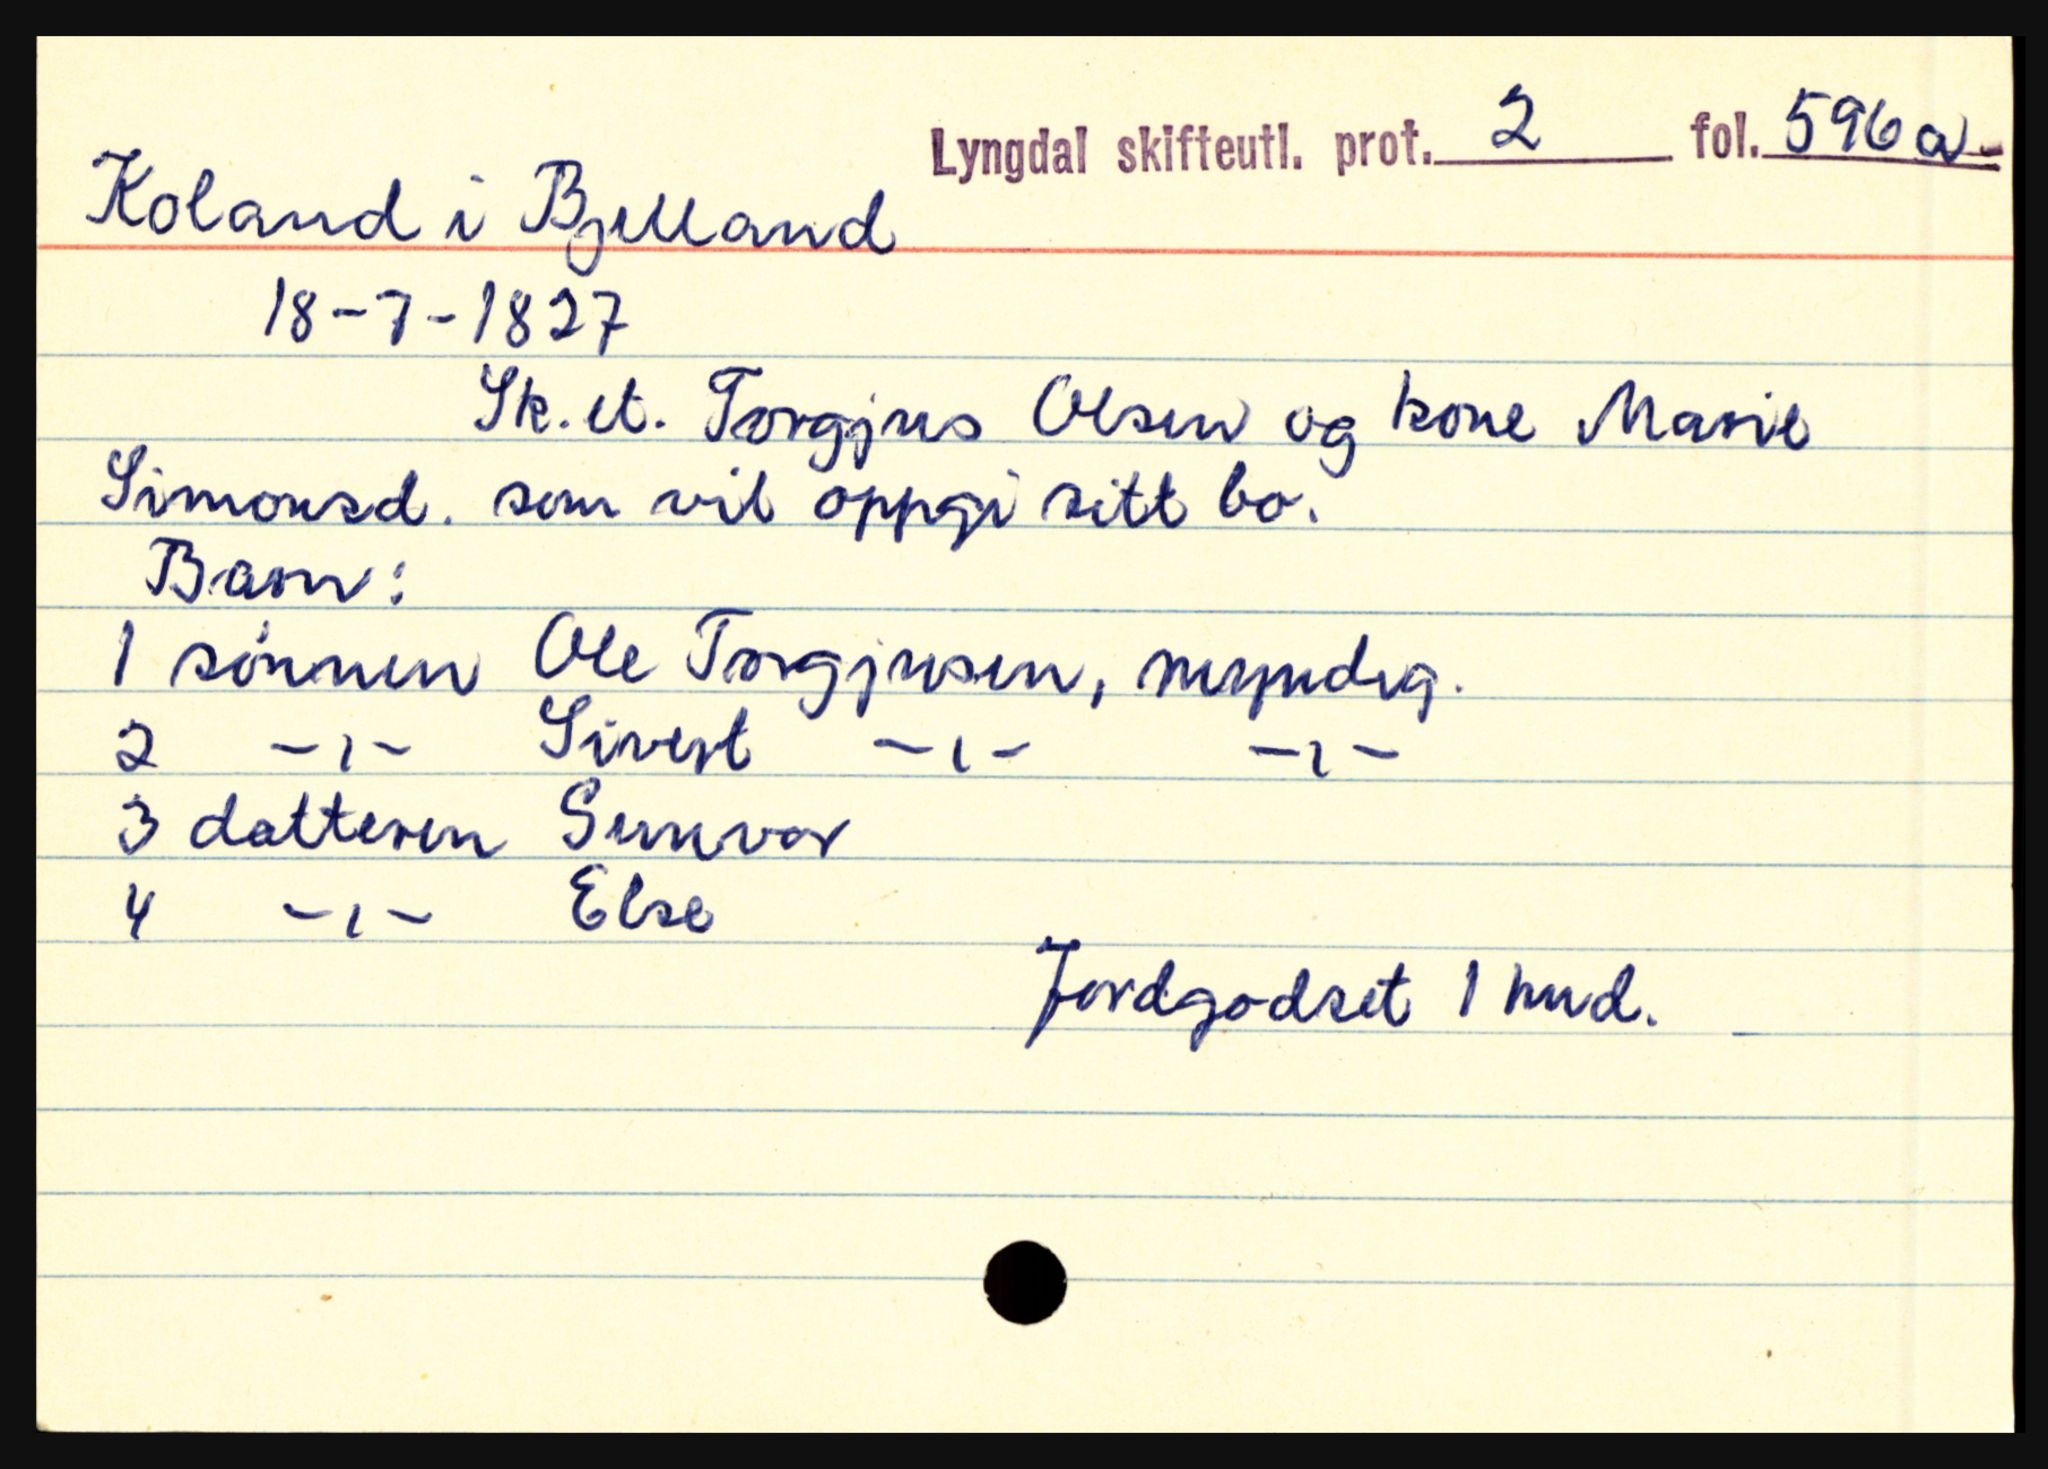 Lyngdal skifteutl. prot. 2 fol. 596a
Koland i Bjelland
18-7-1827
Sk. et. Torgjus Olsen og kone Marie
Simonsd. som vil oppgi sitt bo.
Barn:
1 sønnen Ole Torgjusen, myndig.
2 -ı- Sivert -ı- -ı-
3 datteren Gunvor
4 -ı- Else
Jordgodset 1 hud.